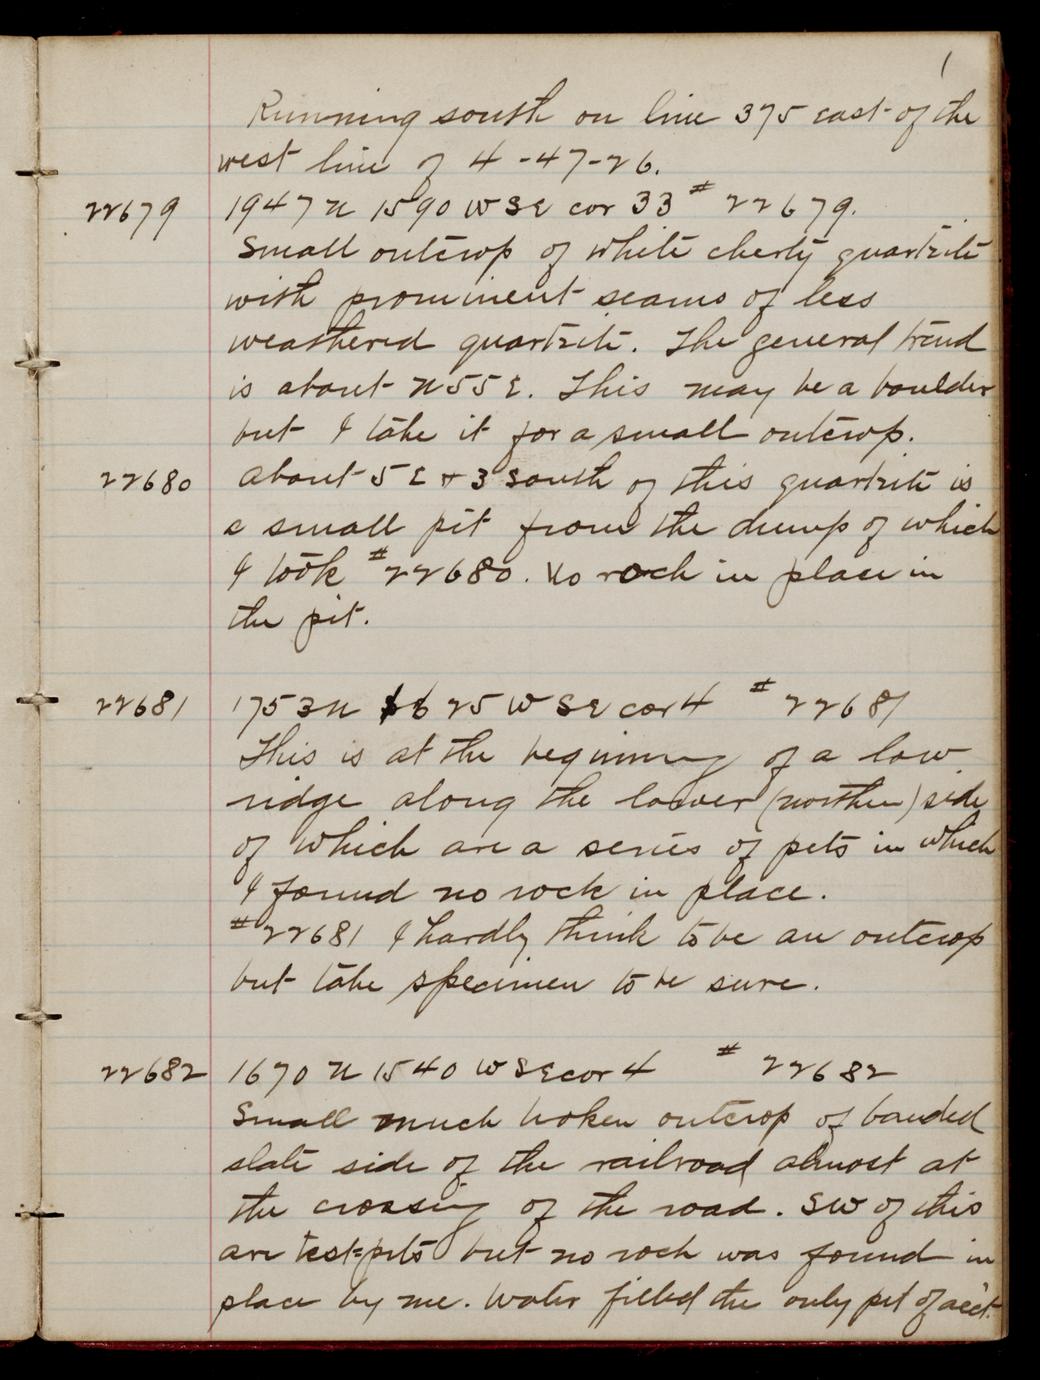 1
Running south on line 375 east of the
west line of 4-47-26.
22679 1947 N 1590 W SE cor 33 # 22679.
Small outcrop of white cherty quartzite
with prominent seams of less
weathered quartzite. The general trend
is about N55E. This may be a boulder
but I take it for a small outcrop.
22680 About 5 E + 3 South of this quartzite is
a small pit from the dump of which
I took #22680. No rock in place in
the pit.
22681 1753 N 625 W SE cor 4 # 22681
This is at the beginning of a low
ridge along the lower (northern) side
of which are a series of pets in which
I found no rock in place.
#22681 I hardly think to be an outcrop
but take specimen to be sure.
22682 1670 N 1540 W SE cor 4 # 22682
Small much broken outcrop of banded
slate side of the railroad almost at
the crossing of the road. SW of this
are test=pits but no rock was found in
place by me. Water filled the only pit of acct.